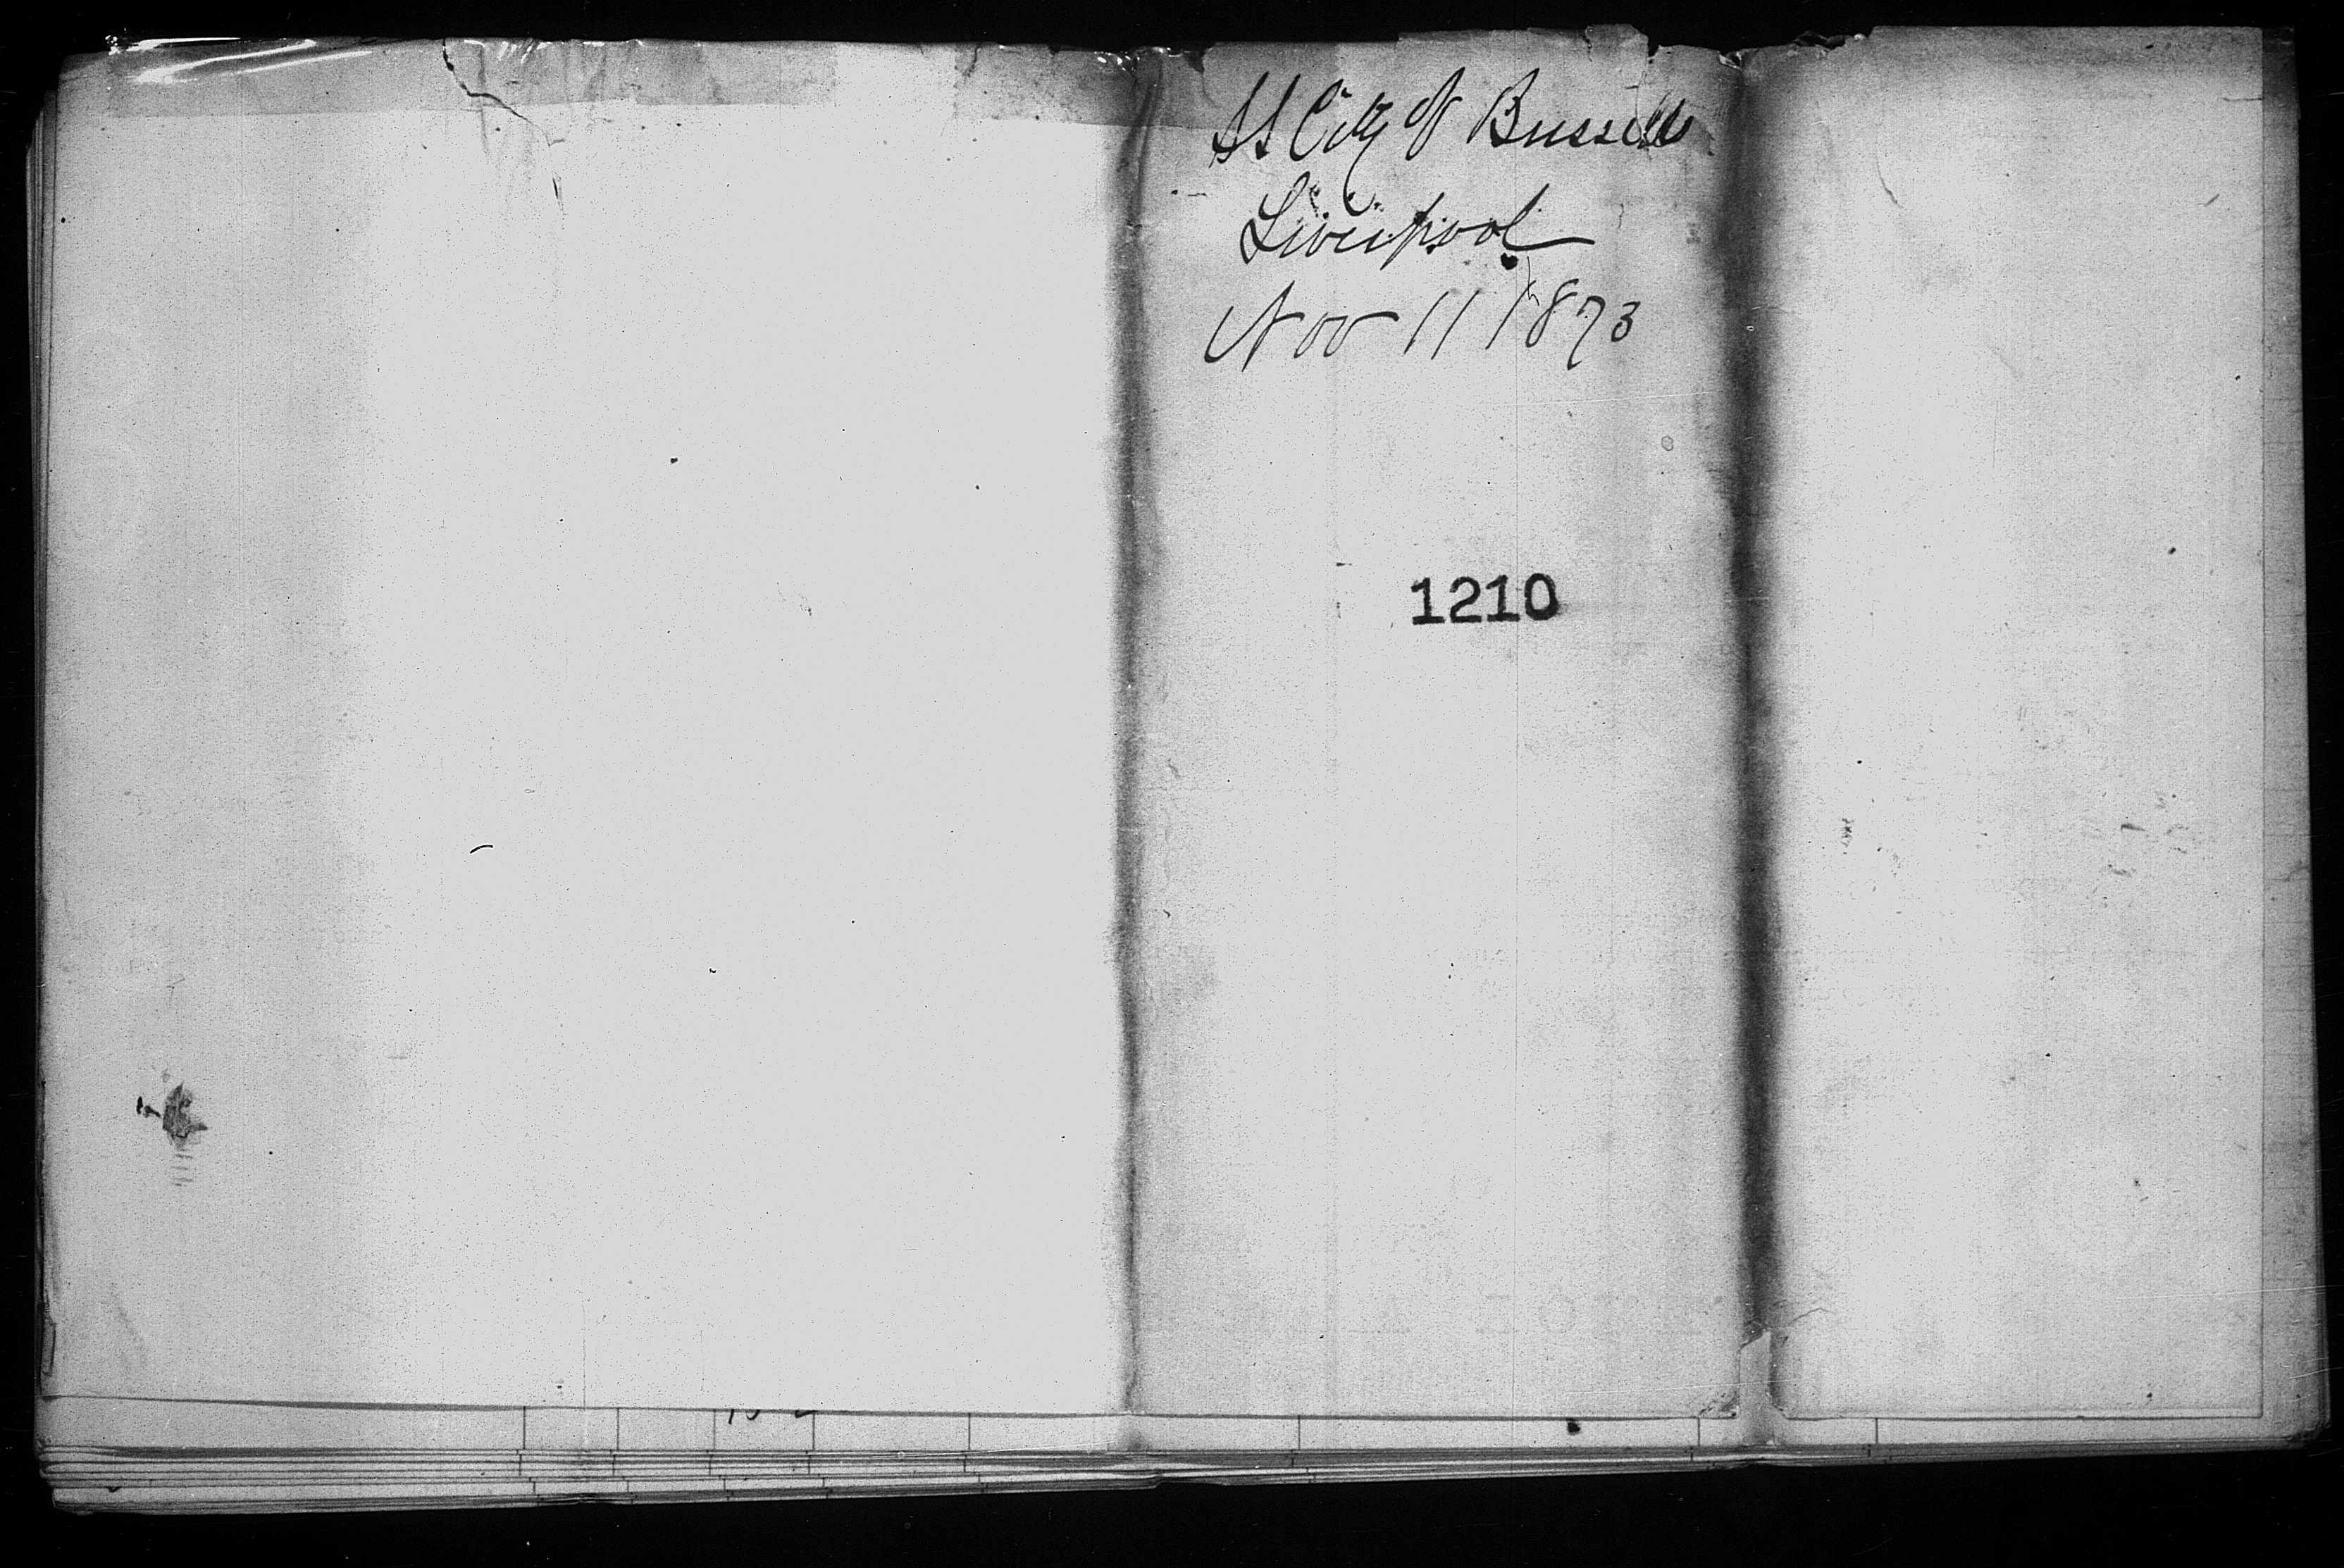 SS City of Bussells
Liverpool
Nov 11 1873
1210